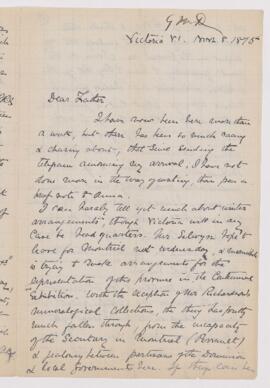 G M D
Victoria V.I. Nov. 8. 1875
Dear Father,
I have now been here more than
a week, but there has been so much
& chasing about, that since sending the
telegram announcing my arrival, I have not
done more in the way of writing, than pen a
brief note to Anna.
I can hardly tell yet much about winter
arrangements though Victoria will in any
case be headquarters. Mr Selwyn hopes to
leave for Montreal next Wednesday, & meanwhile
is trying to make arrangements for the
representation of the province in the Centennial
Exhibition. With the exception of Mr Richardson's
Mineralogical Collections, the thing has pretty
much fallen through, from the incapacity
of the Secretary in Montreal (Perrault)
& jealousy between partisans of the Dominion
& local Governments here. If they can be